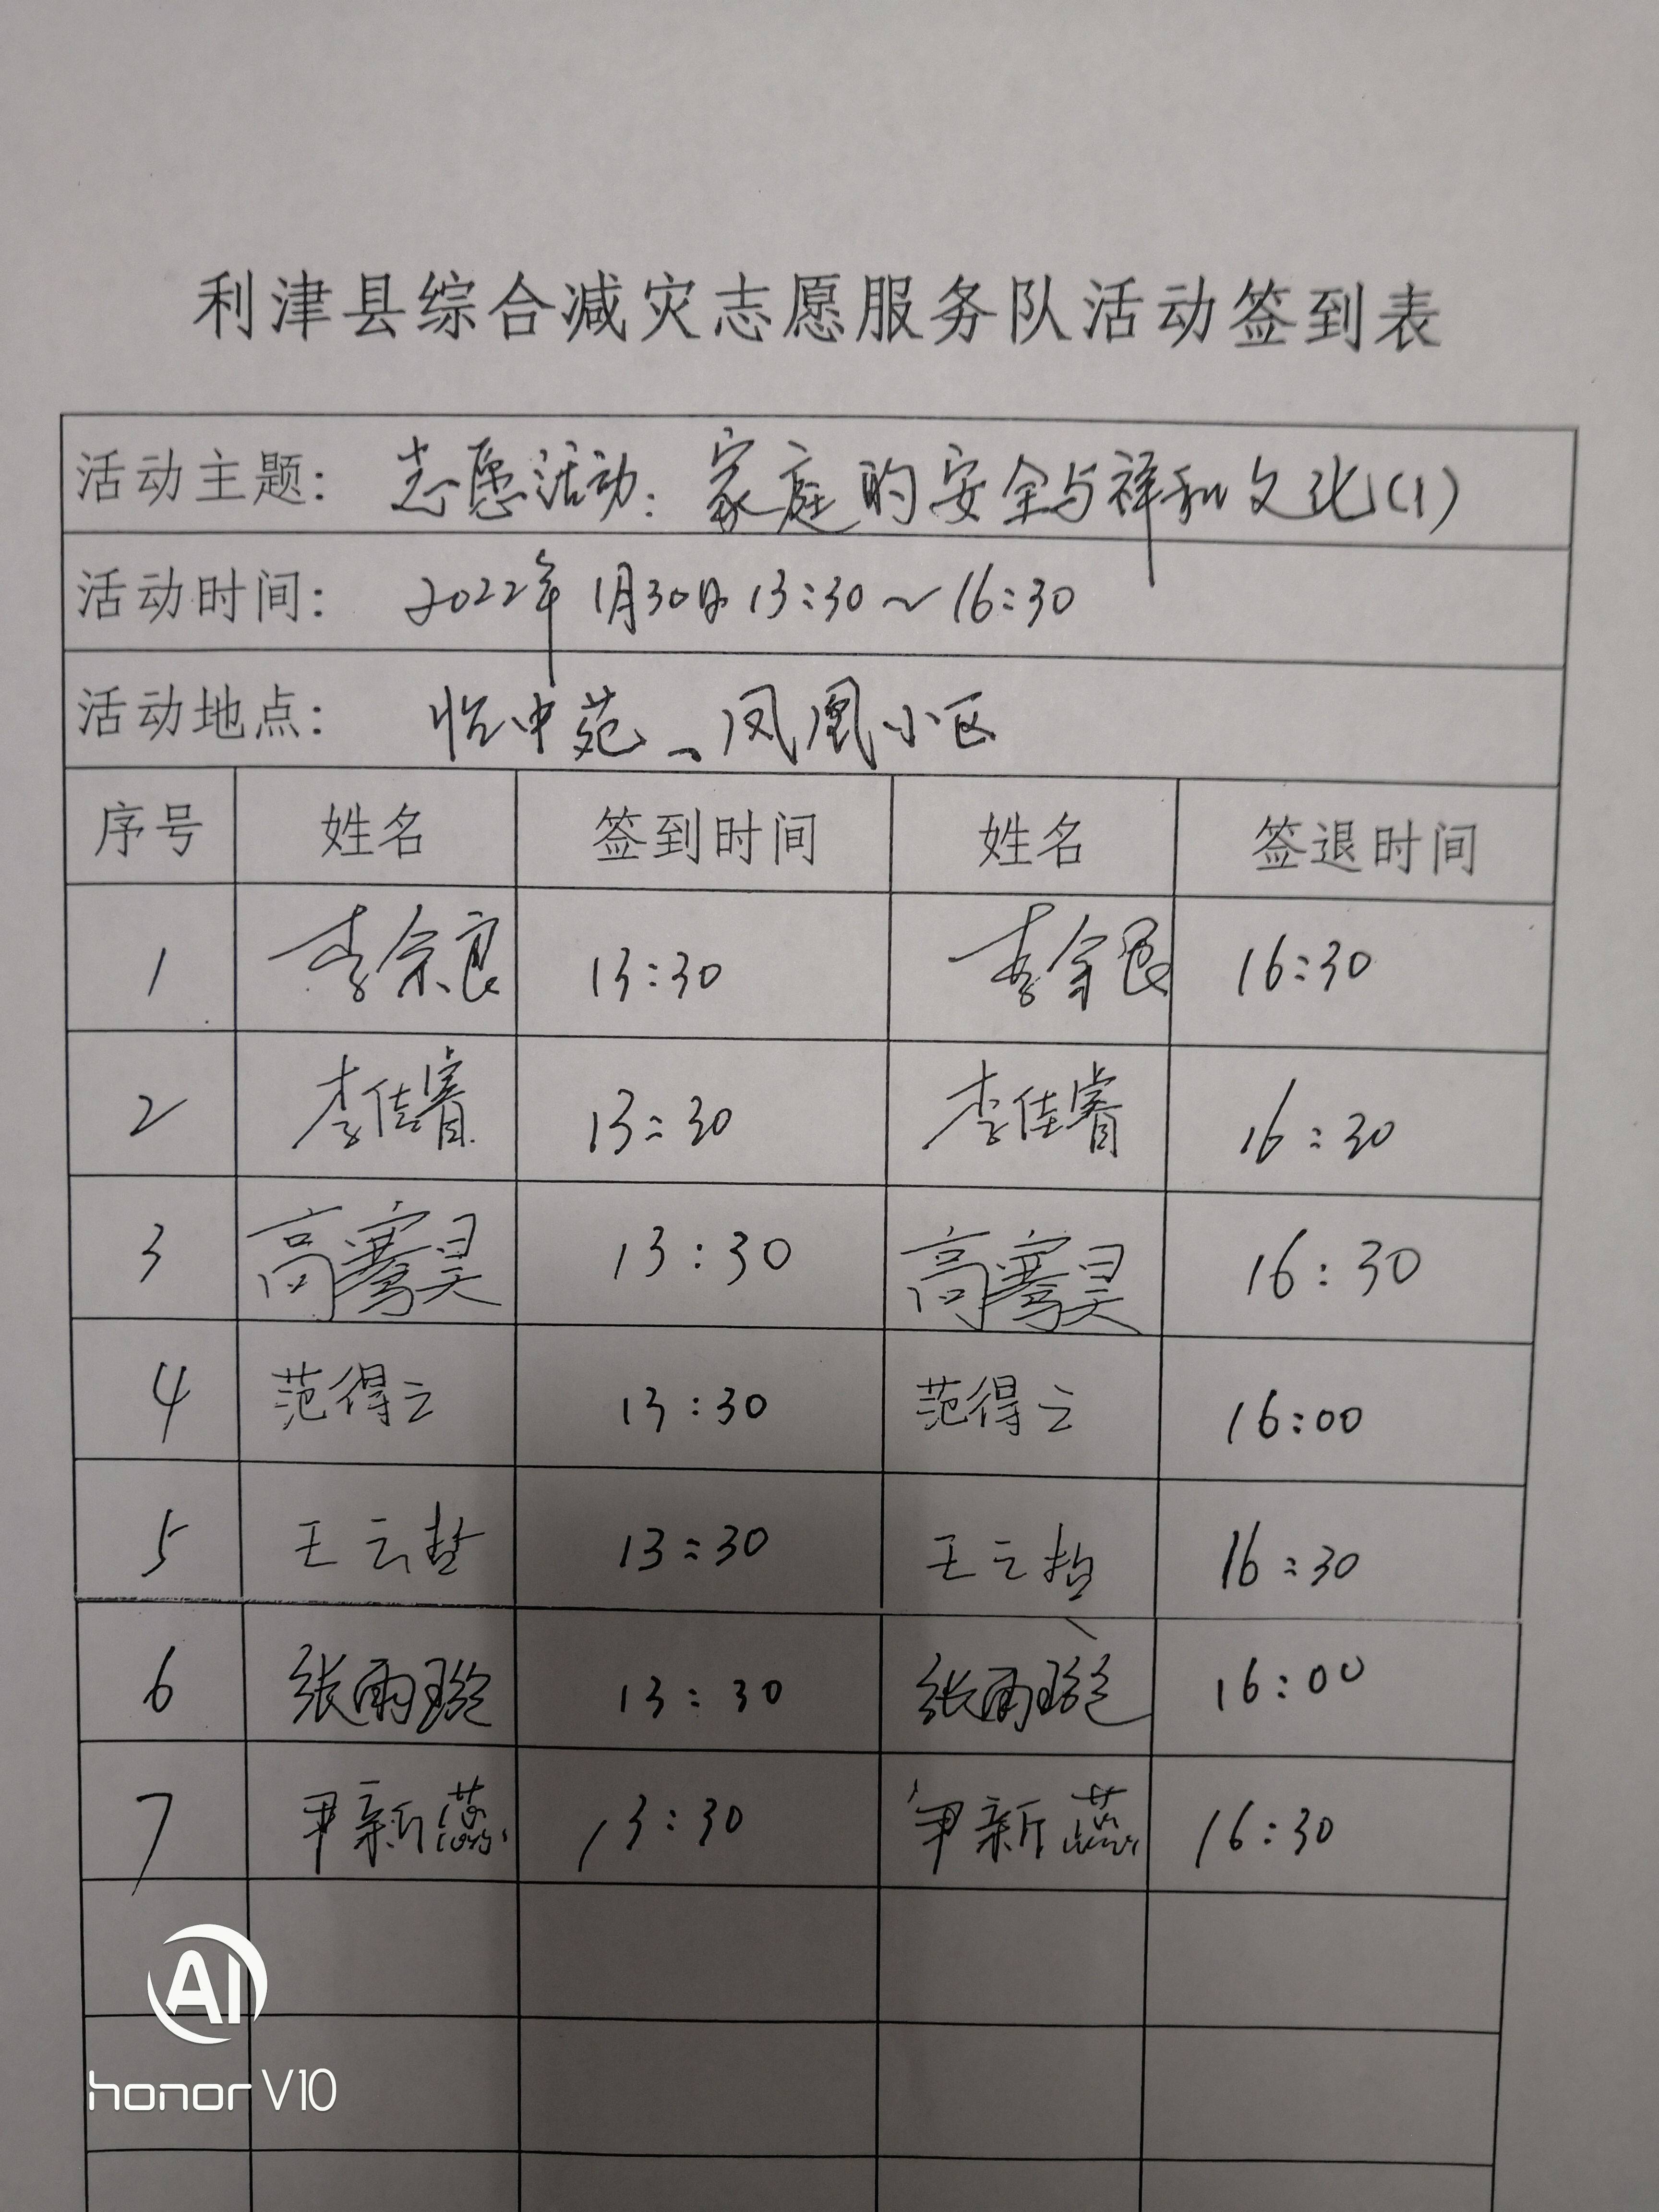 利津县综合减灾志愿服务队活动签到表
活动主题: 志愿活动：家庭的安全与祥和文化(1)
活动时间: 2022年1月30日 13:30～16:30
活动地点: 怡中苑、凤凰小区
序号 姓名 签到时间 姓名 签退时间
1 李余良 13:30 李余良 16:30
2 李佳睿 13:30 李佳睿 16:30
3 高骞昊 13:30 高骞昊 16:30
4 范得云 13:30 范得云 16:00
5 王云哲 13:30 王云哲 16:30
6 张雨璇 13:30 张雨璇 16:00
7 尹新蕊 13:30 尹新蕊 16:30
AI
honor V10